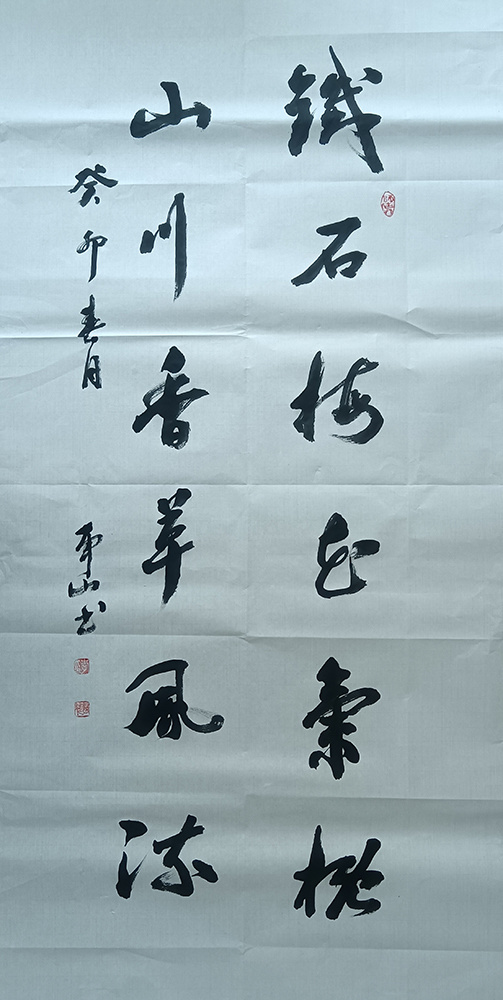 鐵石梅花氣概
山川香草風流
癸卯春月
山书